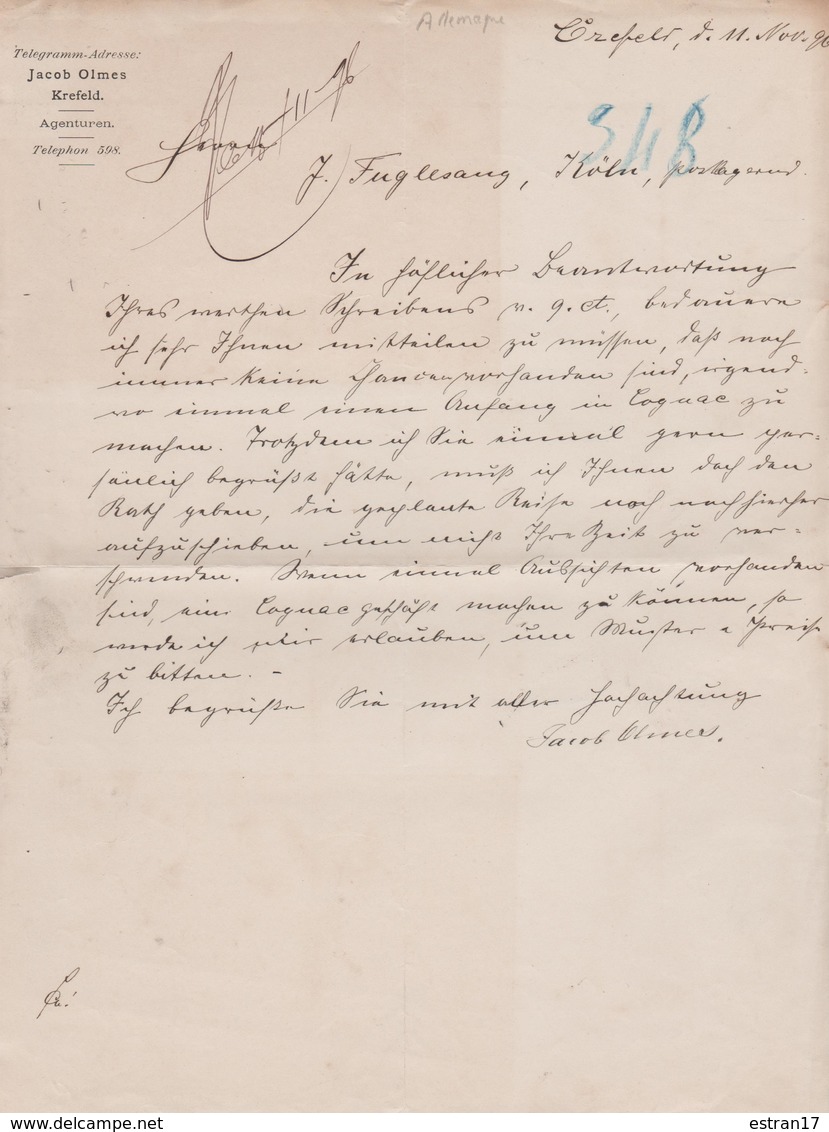 Allemagne
Crefeld, d. 11. Nov. 96
Telegramm-Adresse:
Jacob Olmes
Krefeld.
Agenturen.
Telephon 598.
11/96
348
Herrn
J. Fuglesang, Köln, postlagernd.
In höflicher Beantwortung
Ihres werthen Schreibens v. 9. ct., bedauere
ich sehr Ihnen mitteilen zu müssen, daß noch
immer keine Chancen vorhanden sind, irgend-
wo einmal einen Anfang in Cognac zu
machen. Trotzdem ich Sie einmal gern per-
sönlich begrüßt hätte, muß ich Ihnen doch den
Rath geben, die geplante Reise noch nach hierher
aufzuschieben, um nicht Ihre Zeit zu ver-
schwenden. Wenn einmal Aussichten vorhanden
sind, ein Cognacgeschäft machen zu können, so
werde ich mir erlauben, um Muster & Preise
zu bitten. -
Ich begrüße Sie mit aller Hochachtung
Jacob Olmes.
delcampe.net
estran17